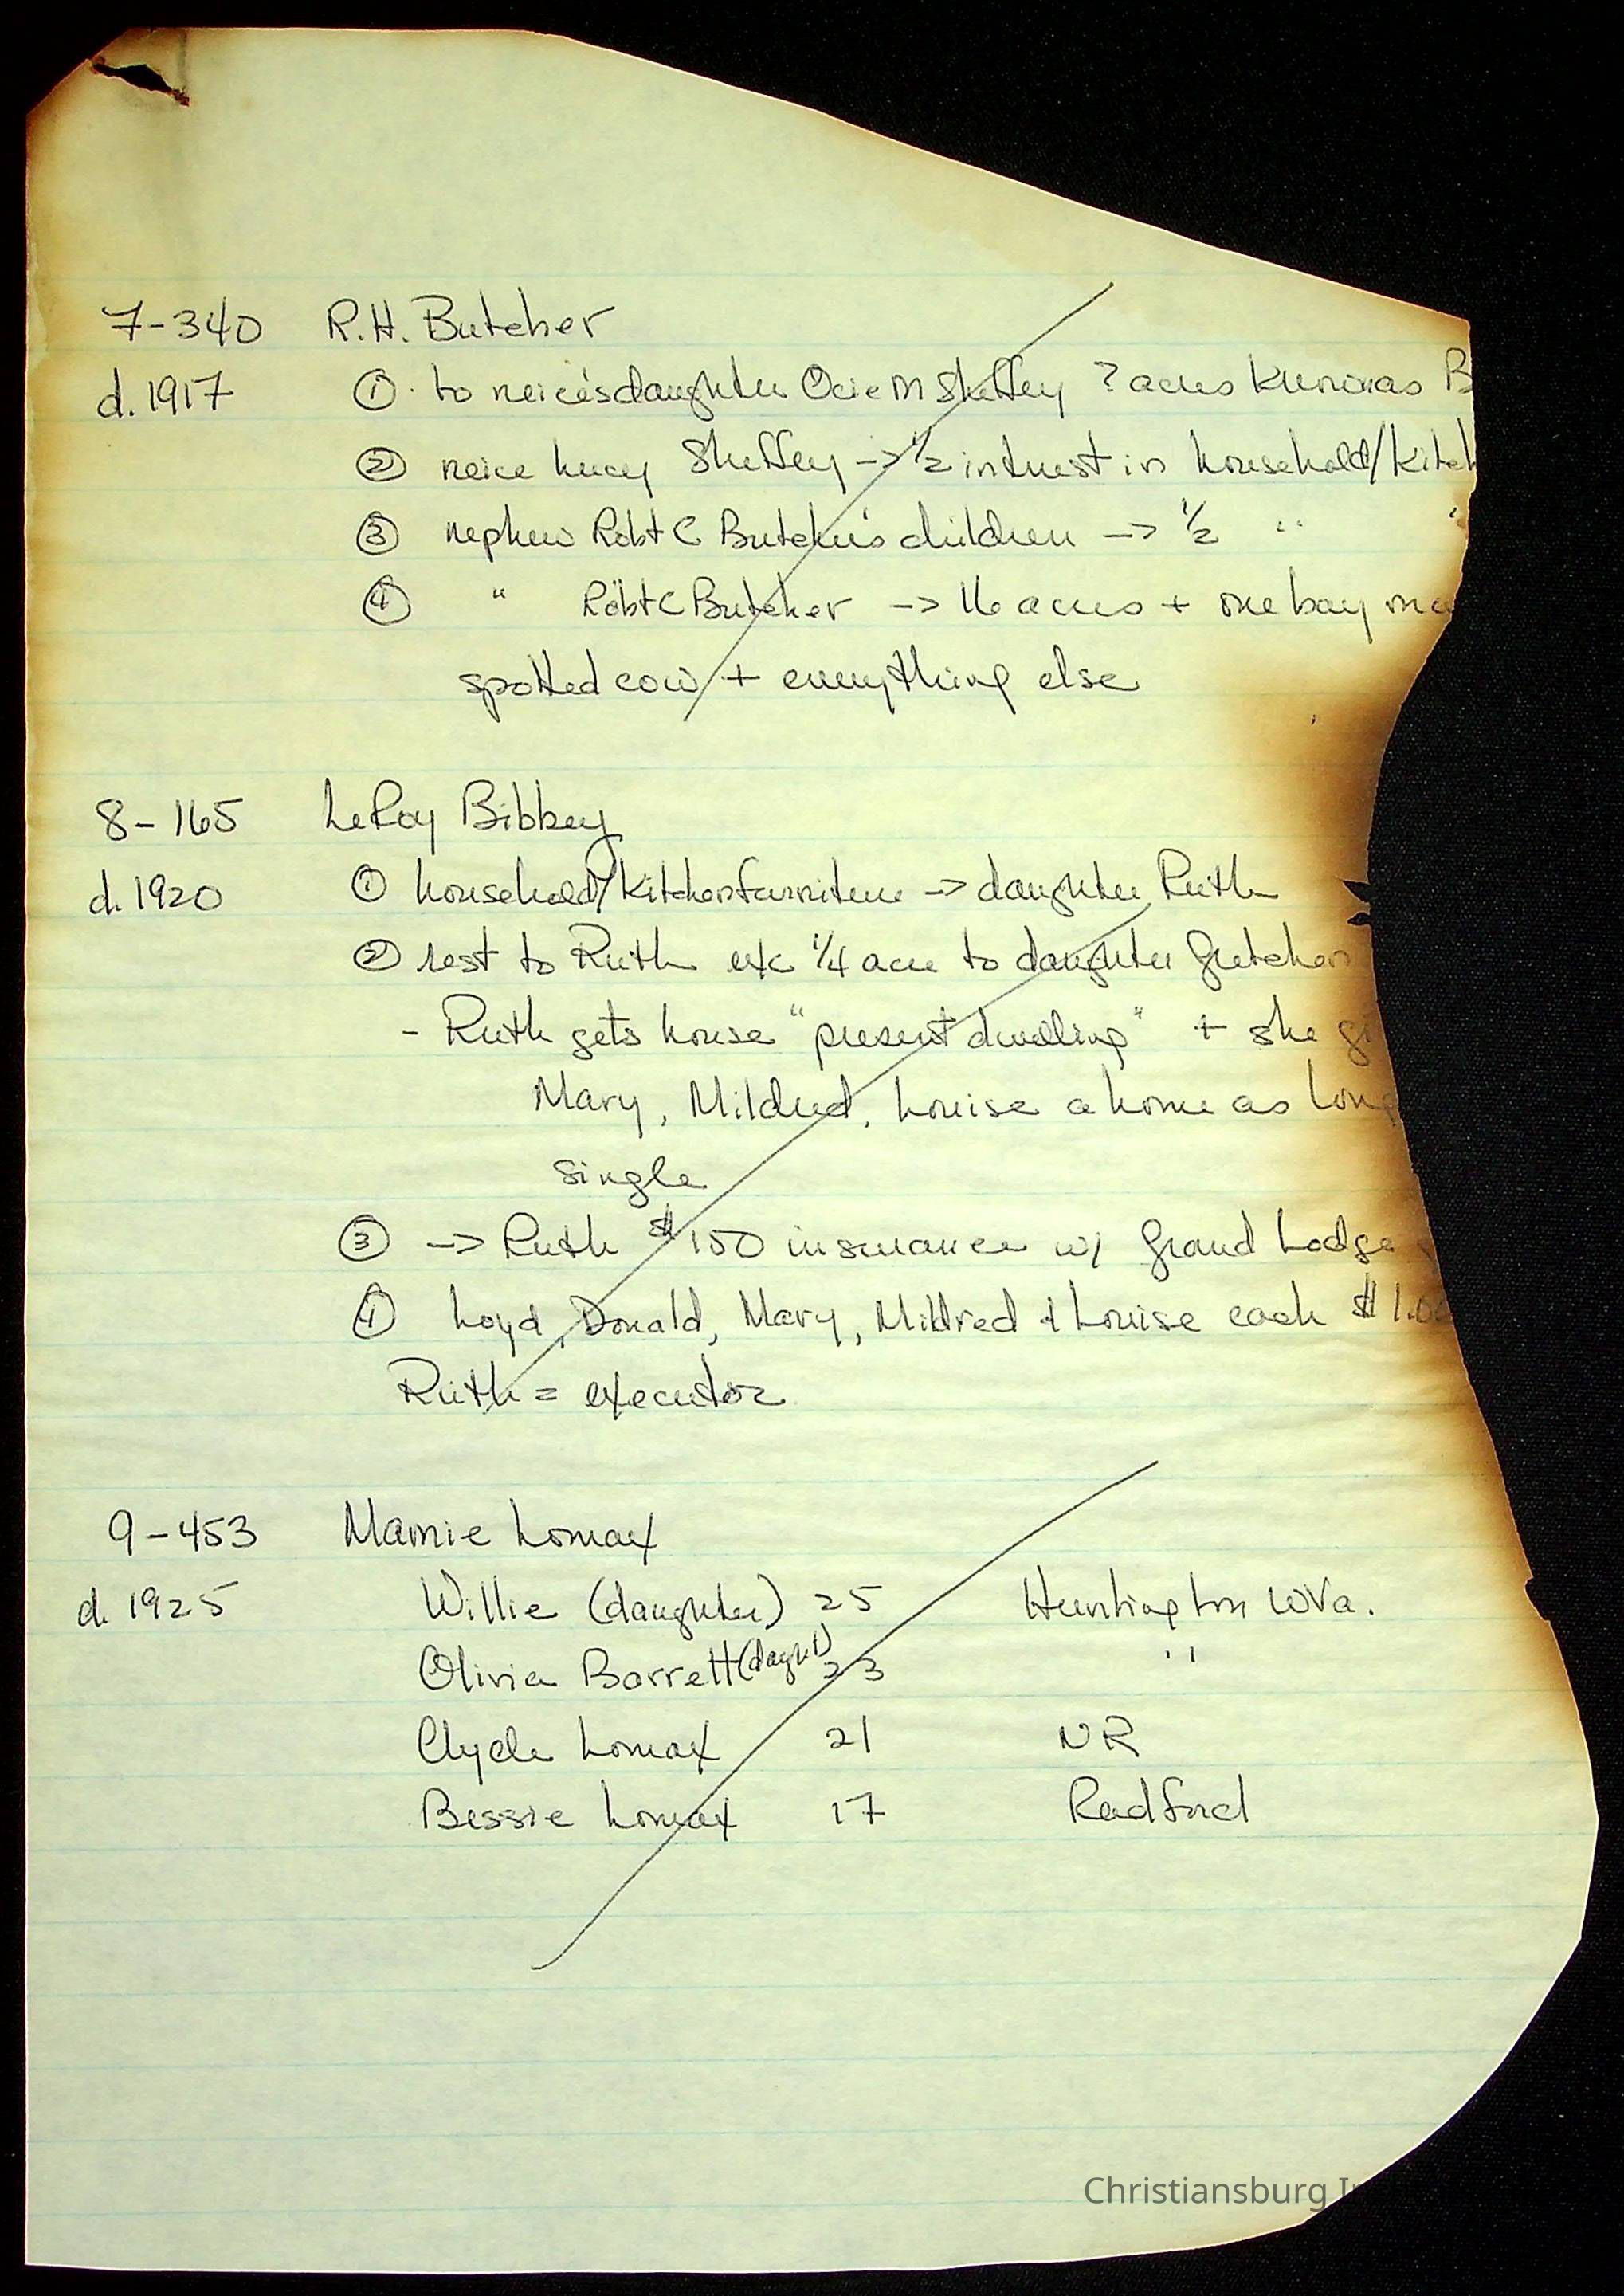 7-340 R.H. Butcher
d. 1917 ① to neice's daughter Ocie M Sheffey ? acres known as B
② neice Lucy Sheffey -> 1/2 intrest in household/kitch
③ nephew Robt C Butcher's children -> 1/2 " "
④ " Robt C Butcher -> 16 acres + one bay ma
spotted cow + everything else
8-165 LeRoy Bibbey
d. 1920 ① household/kitchen furniture -> daughter Ruth
② rest to Ruth exc 1/4 acre to daughter Gretchen
- Ruth gets house "present dwelling" + she gi
Mary, Mildred, Louise a home as long
single
③ -> Ruth $150 insurance w/ Grand Lodge
④ Loyd, Donald, Mary, Mildred + Louise each $1.00
Ruth = executor
9-453 Mamie Lomax
d. 1925 Willie (daughter) 25 Huntington WVa.
Olivia Barrett (daght) 23 "
Clyde Lomax 21 NR
Bessie Lomax 17 Radford
Christiansburg